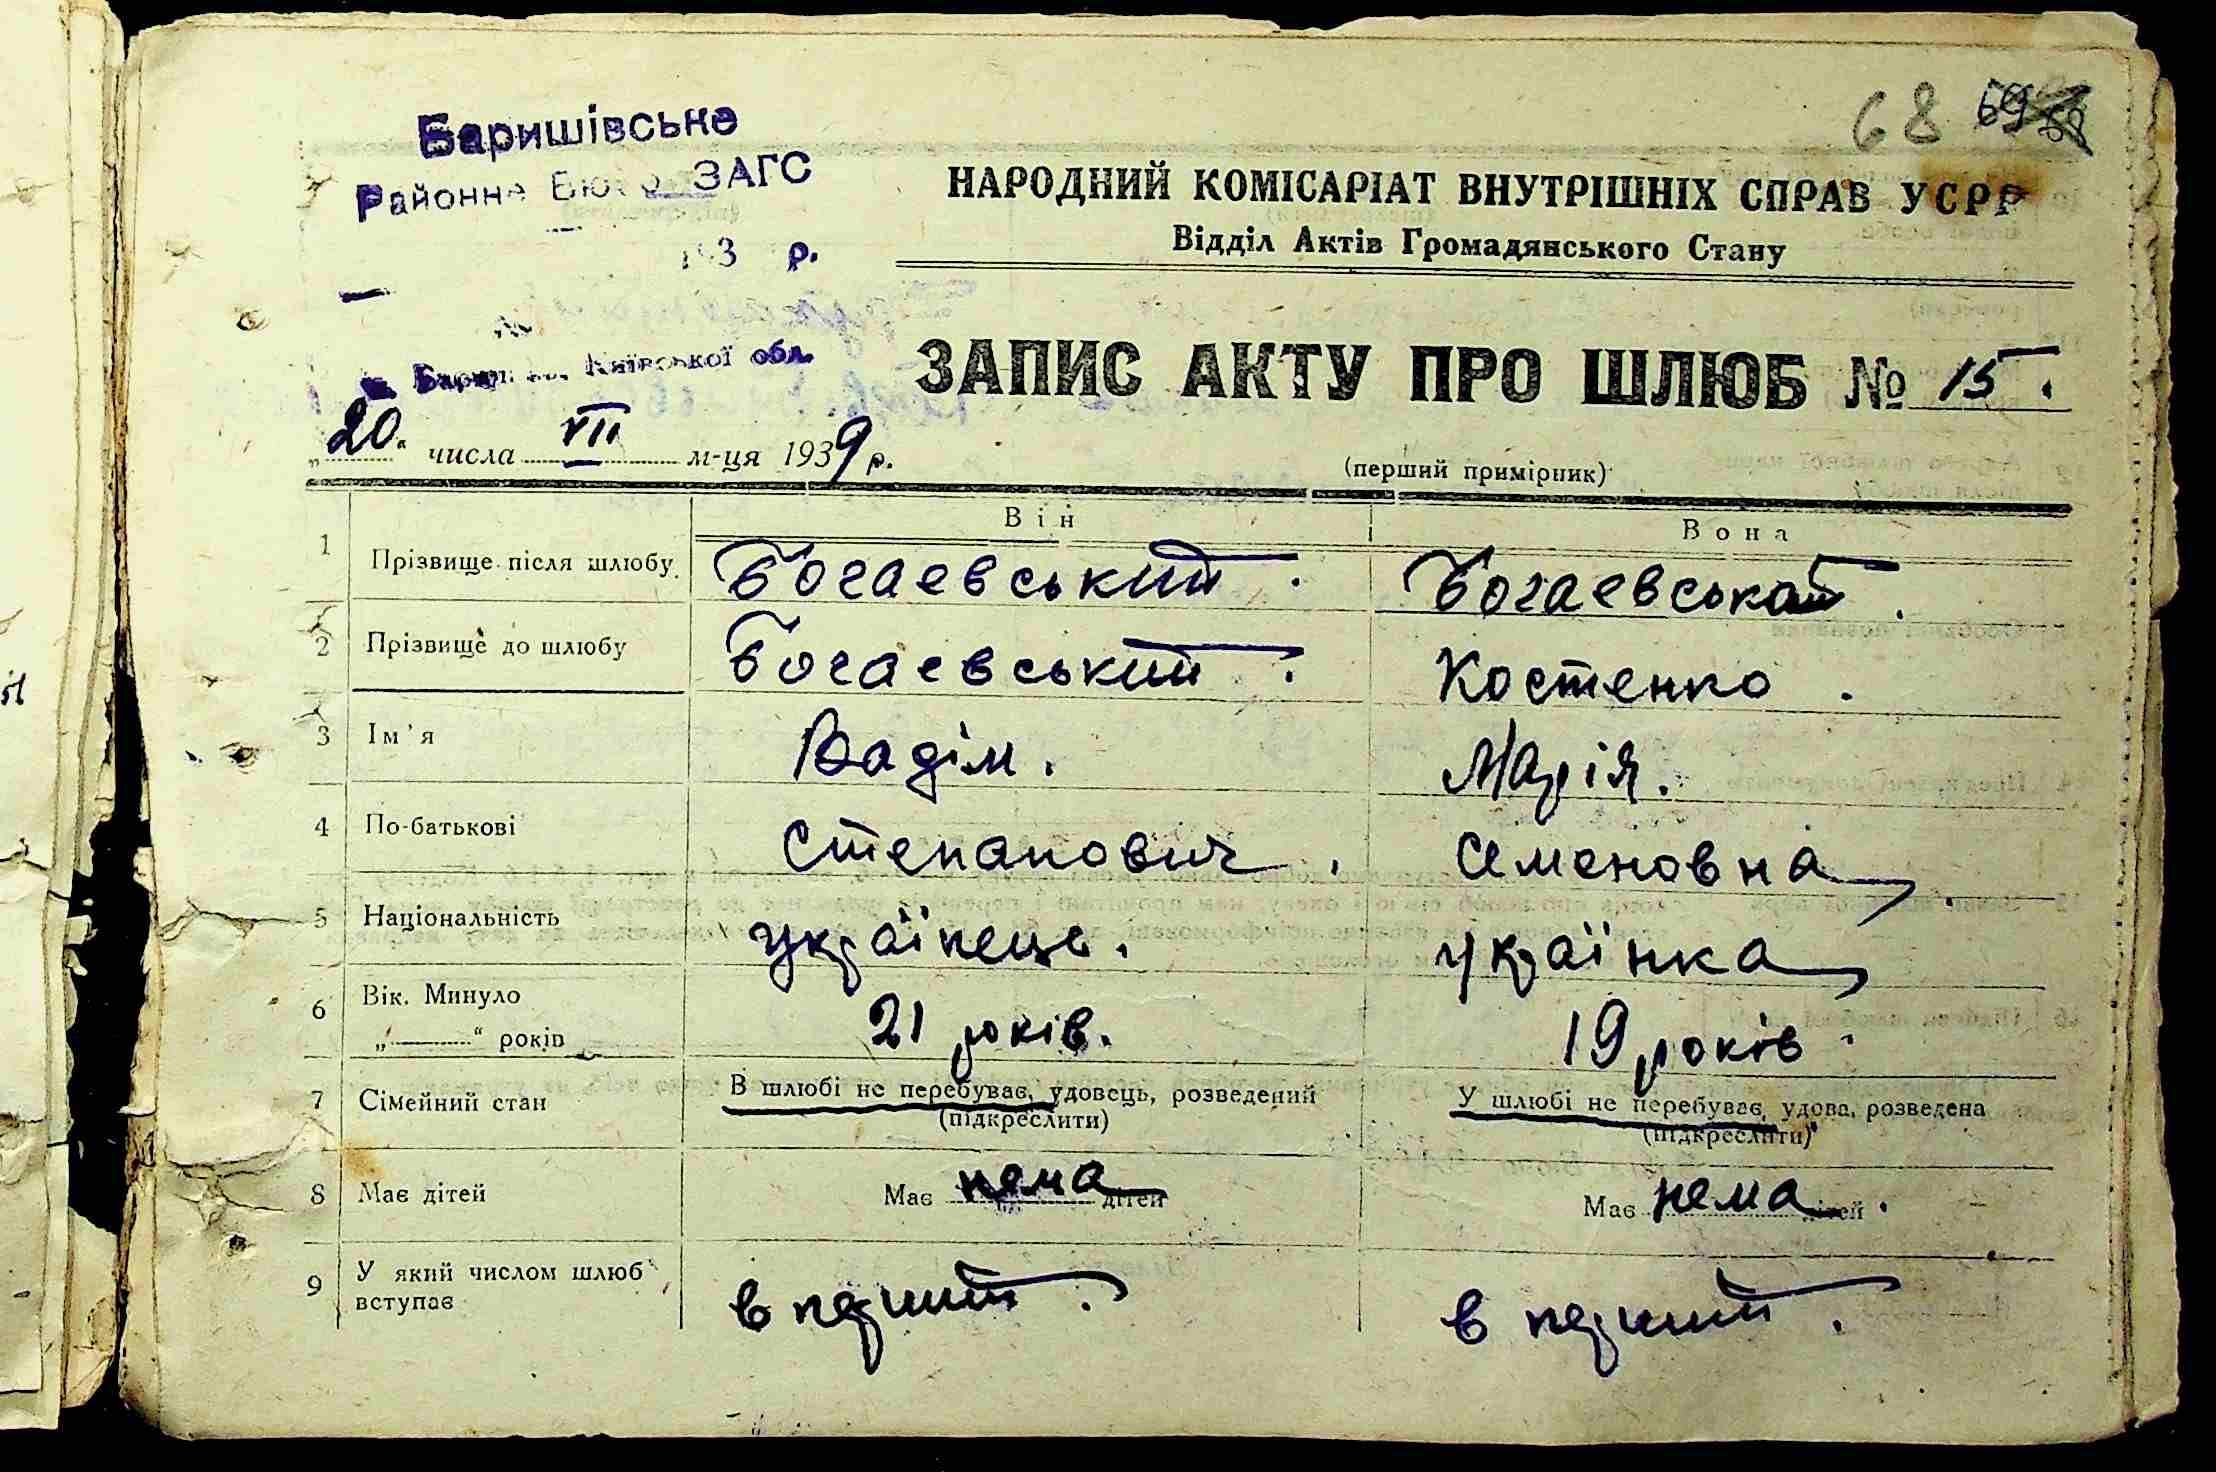 68 59
Баришівське
Районне Бюро ЗАГС
193 р.
Київської обл.
НАРОДНИЙ КОМІСАРІАТ ВНУТРІШНІХ СПРАВ УСРР
Відділ Актів Громадянського Стану
ЗАПИС АКТУ ПРО ШЛЮБ № 15.
„20.“ числа VII м-ця 1939 р.
(перший примірник)
Він Вона
1 Прізвище після шлюбу Богаевський. Богаевська.
2 Прізвище до шлюбу Богаевський. Костенко.
3 Ім'я Вадім. Марія.
4 По-батькові Степанович. Семеновна.
5 Національність українець. українка
6 Вік. Минуло
„ “ років 21 років. 19 років.
7 Сімейний стан В шлюбі не перебуває, удовець, розведений У шлюбі не перебуває, удова, розведена
(підкреслити) (підкреслити)
8 Має дітей Має нема дітей Має нема дітей.
9 У який числом шлюб вступає в перший. в перший.